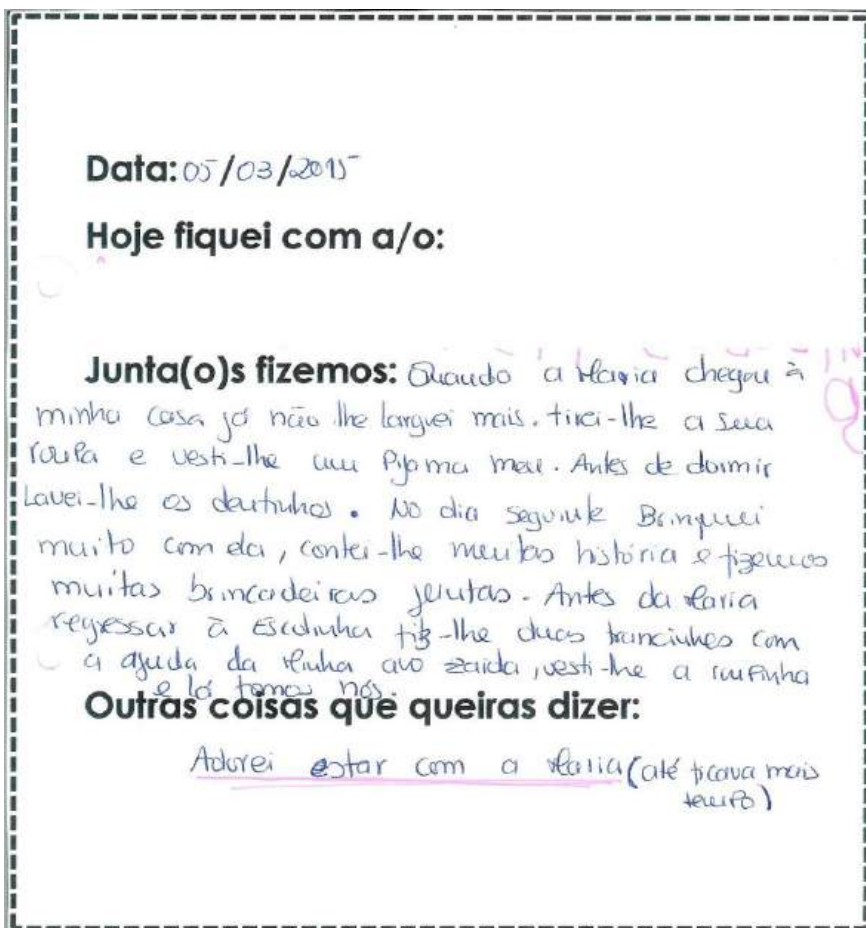 Data: 05/03/2015
Hoje fiquei com a/o:
Junta(o)s fizemos: Quando a Maria chegou à
minha casa já não lhe larguei mais. tirei-lhe a sua
roupa e vesti-lhe um Pijama meu. Antes de dormir
Lavei-lhe os dentinhos. No dia seguinte Brinquei
muito com ela, contei-lhe muitas história e fizemos
muitas brincadeiras juntas. Antes da Maria
regressar à Escolinha fiz-lhe duas trancinhas com
a ajuda da minha avo zaida, vesti-lhe a roupinha
e lá fomos nós.
Outras coisas que queiras dizer:
Adorei estar com a Maria (até ficava mais
tempo)